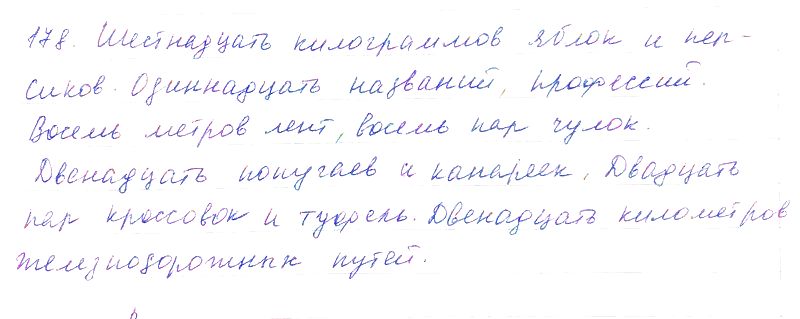 178. Шестнадцать килограммов яблок и пер-
сиков. Одиннадцать названий, профессий.
Восемь метров лент, восемь пар чулок.
Двенадцать попугаев и канареек, Двадцать
пар кроссовок и туфель. Двенадцать километров
железнодорожных путей.